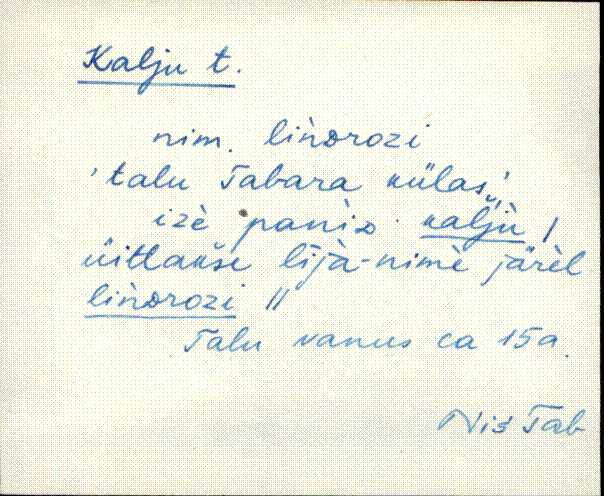 Kalju t.
nim. liǹdrozi
'talu Tabara külas'
izè panìD kaljù /
üitlakse lījà-nimè järèl
liǹdrozi //
Talu vanus ca 15a.
Nis Tab